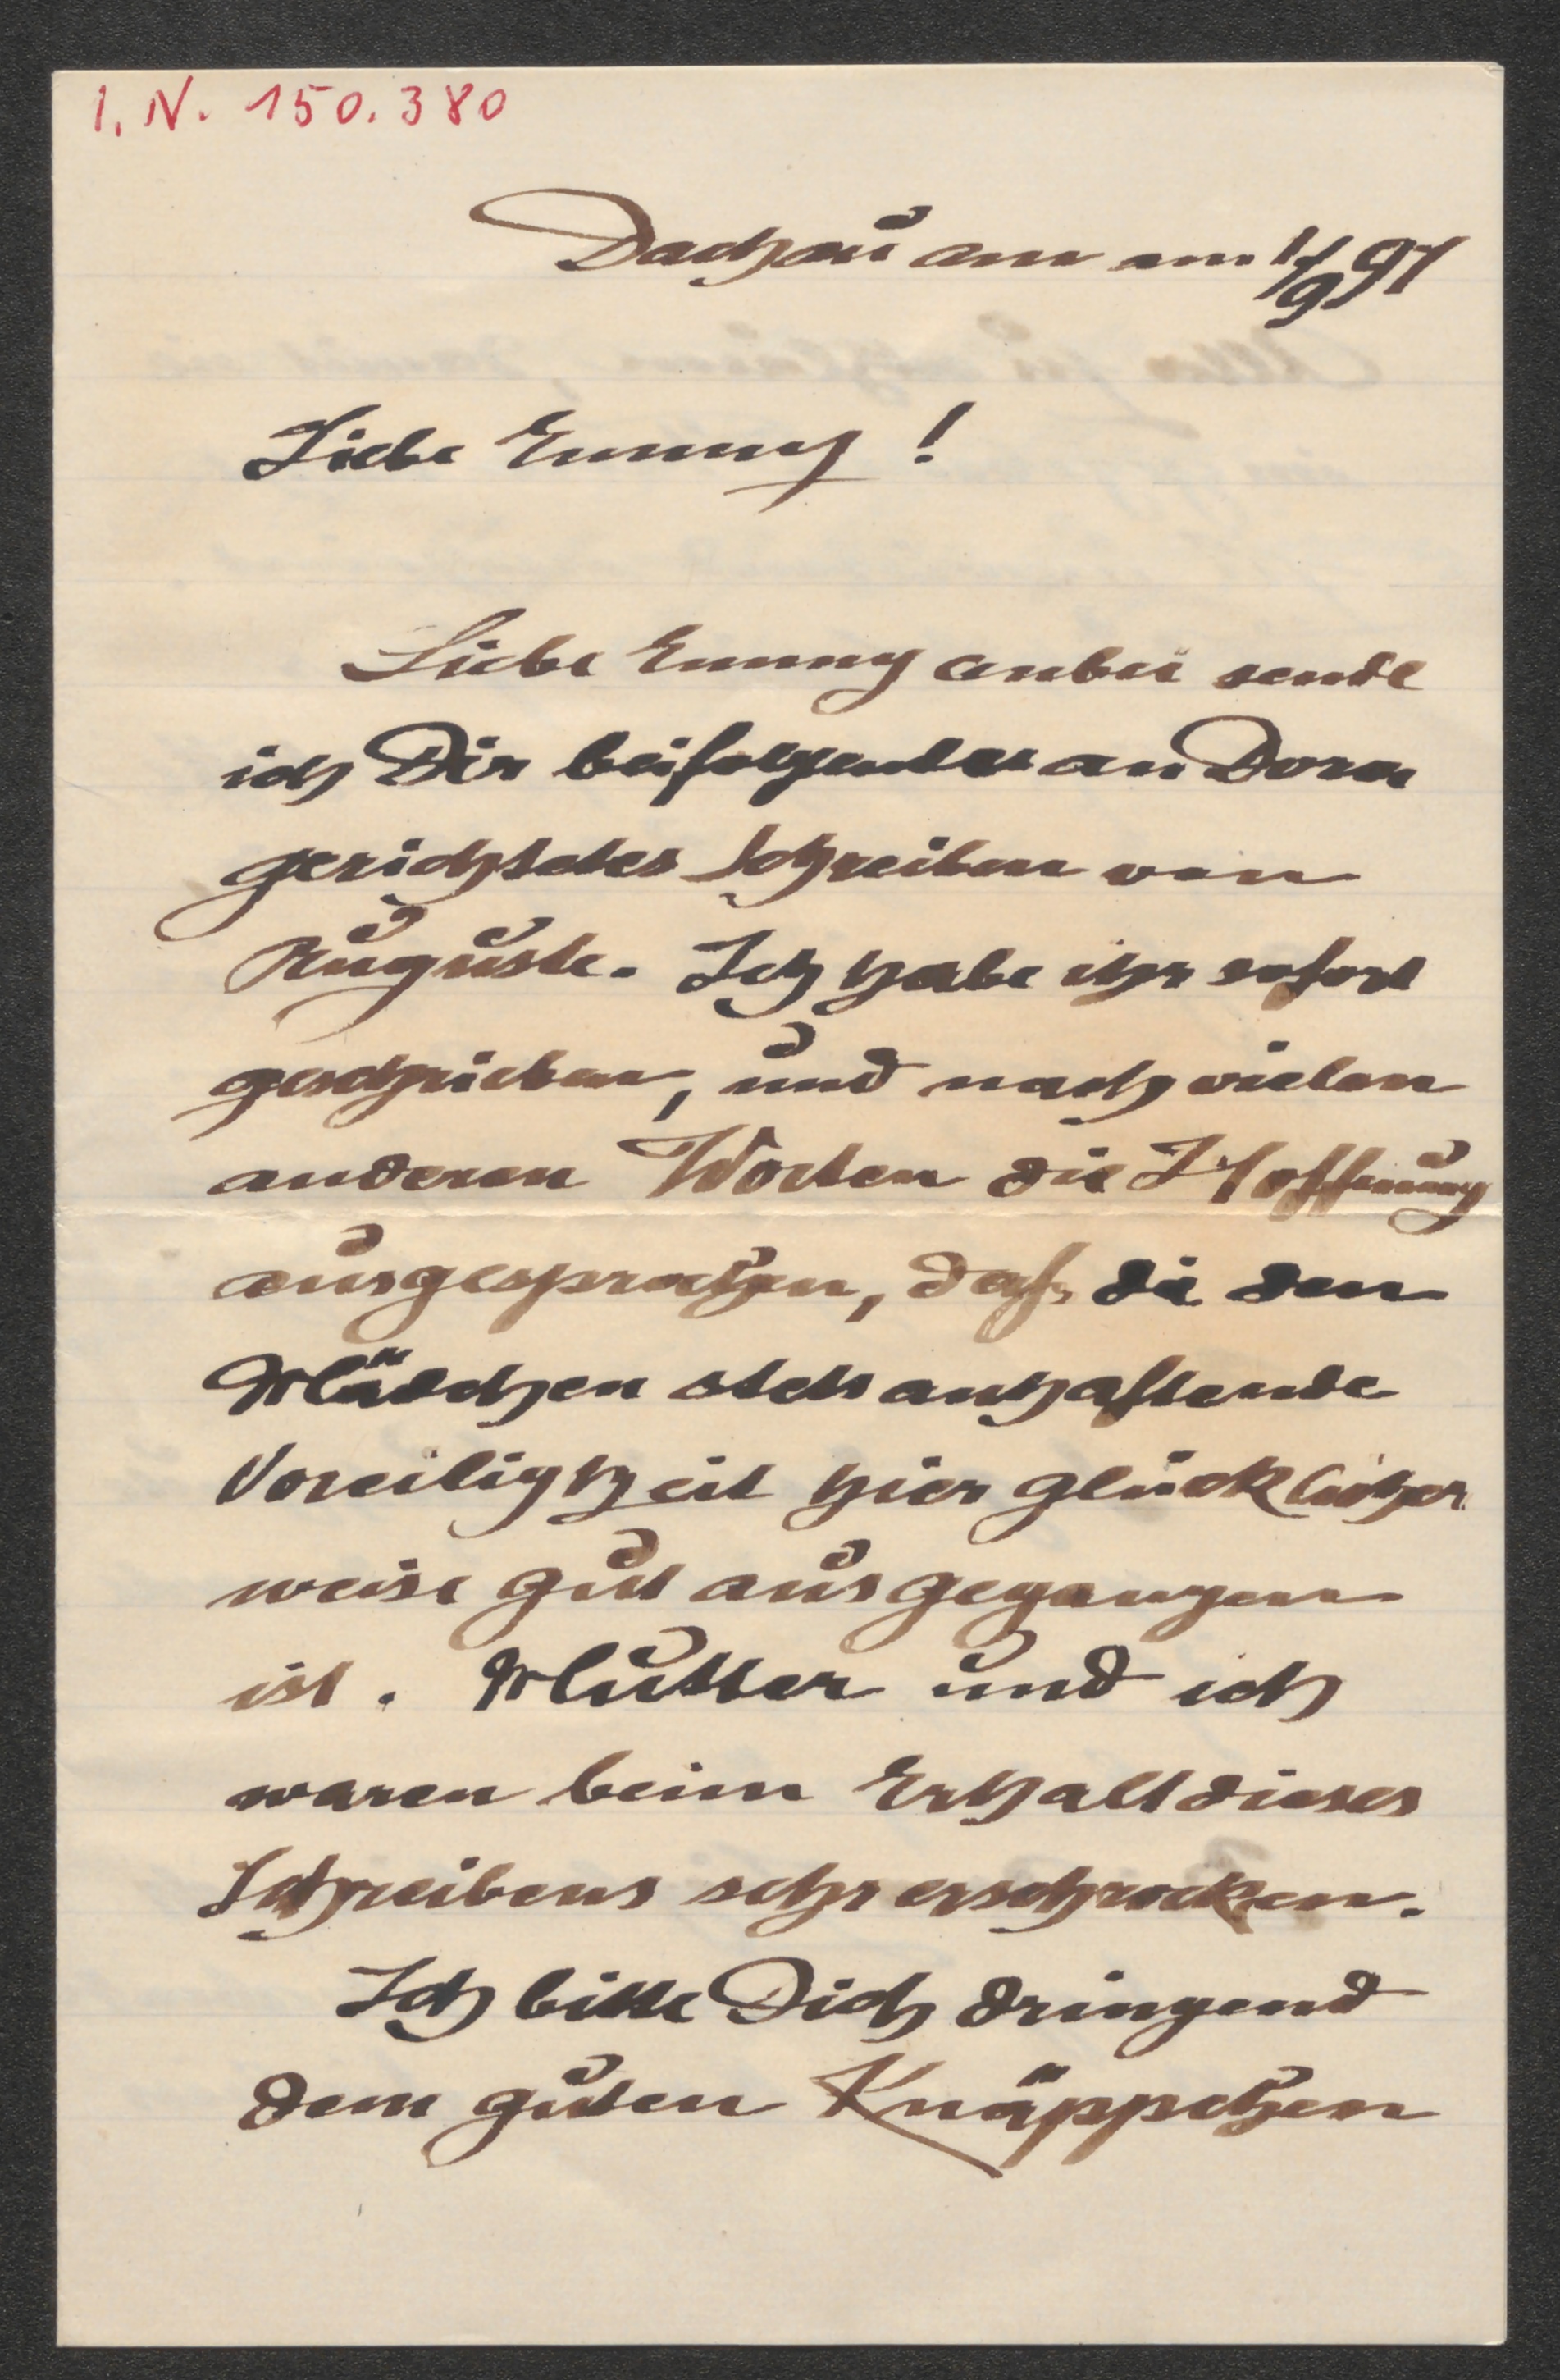 I. N. 150.380
Dachau am am 1/9 97
Liebe Emmy !
Liebe Emmy anbei sende
ich Dir beifolgendes an Dora
gerichtetes Schreiben von
Auguste. Ich habe ihr sofort
geschrieben, und nach vielen
anderen Worten die Hoffnung
ausgesprochen, daß die den
Mädchen stets anhaftende
Voreiligkeit hier glücklicher
weise gut ausgegangen
ist. Mutter und ich
waren beim Erhalt dieses
Schreibens sehr erschrocken.
Ich bitte Dich dringend
dem guten Knäppchen